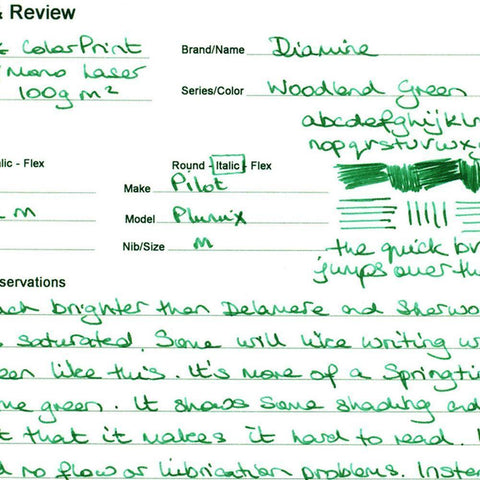 & Review
& ColorPrint
Brand/Name Diamine
Mono Laser
100g m²
Series/Color Woodland Green
abcdefghijklm
nopqrstuvwxy
alic - Flex
Round - Italic - Flex
Make Pilot
M
Model Plumix
Nib/Size M
the quick br
jumps over th
servations
ch brighter than Delamere and Sherwo
s saturated. Some will like writing w
een like this. It's more of a Springti
me green. It shows some shading and
t that it makes it hard to read. I
d no flow or lubrication problems. Inste